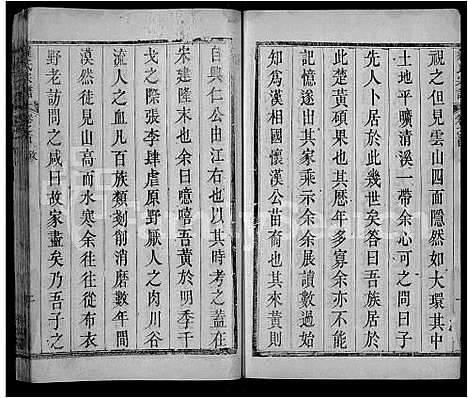 視之但見雲山四面隱然如大環其中
土地平曠清溪一帶余心可之問曰子
先人卜居於此幾世矣答曰吾族居於
楚黃碩果也然其曆年多實余亦不能
記憶遂出其家乘示余余展讀數過始
知為漢相國懷漢公苗裔也其來黃則
自興仁公由江右也以其時考之蓋在
宋建隆末也余曰噫嘻吾黃於明季干
戈之際張李肆虐原野厭人之肉川谷
流人之血凡百族類剗削消磨數年間
漠然徒見山高而水寒余往往從布衣
野老訪問之咸曰故家盡矣乃吾子之